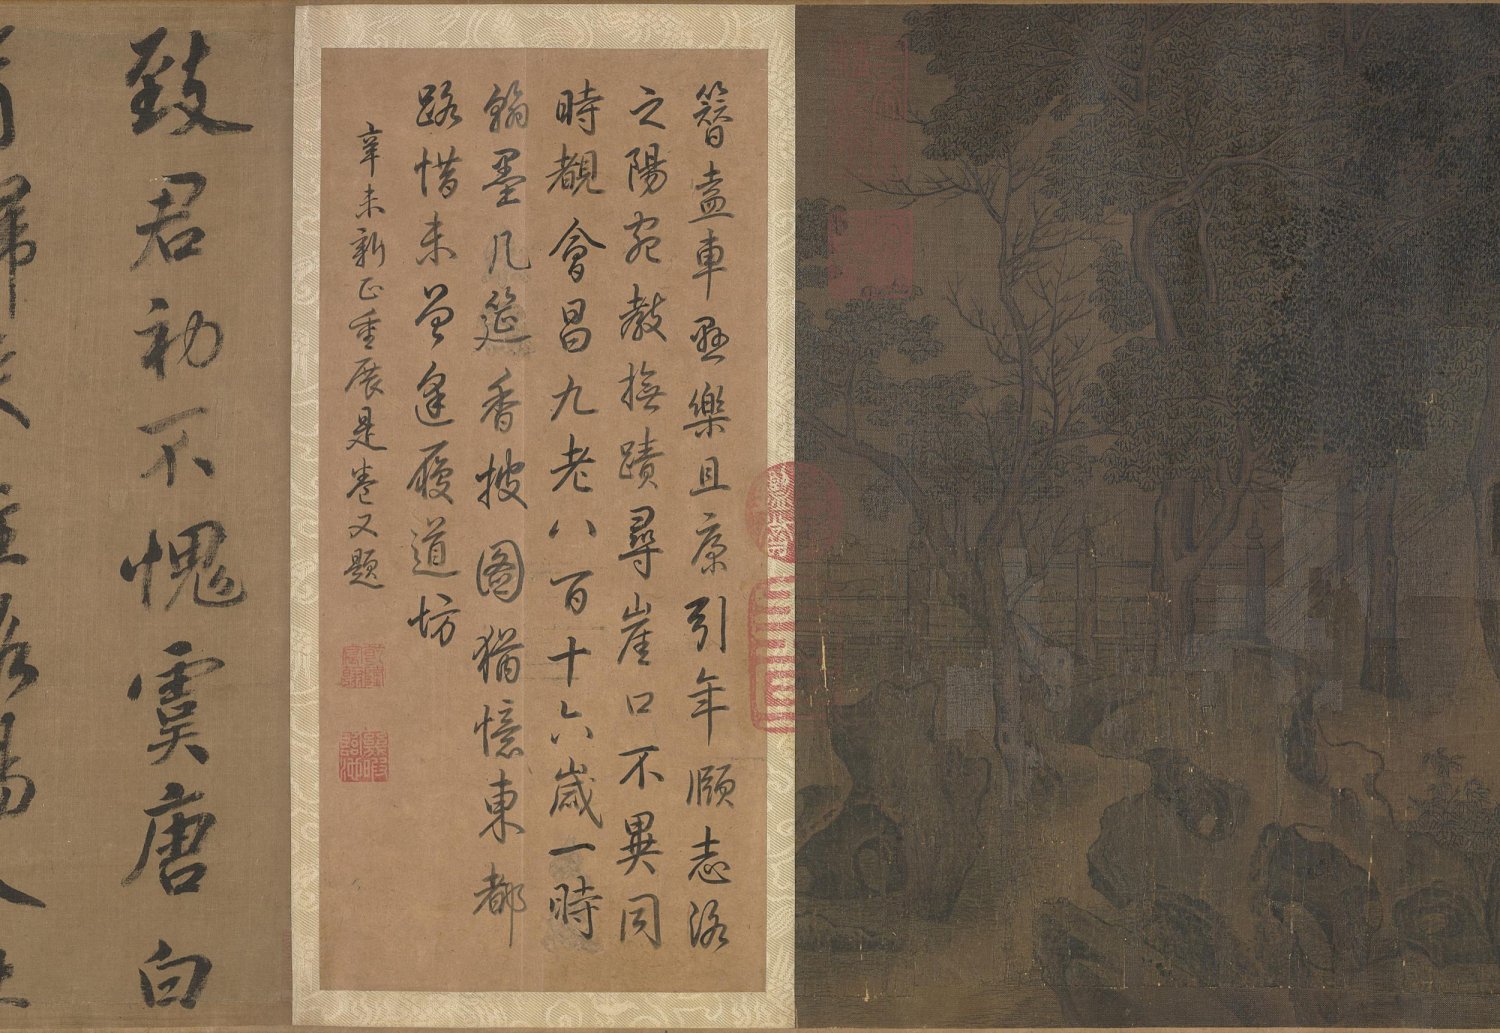 簪盍車懸樂且康引年頤志洛
之陽宛教撫蹟尋崖口不異同
時覩會昌九老八百十六歲一時
翰墨几筵香披圖猶憶東都
路惜未曾逢履道坊
辛未新正重展是卷又題
致君初不愧虞唐白